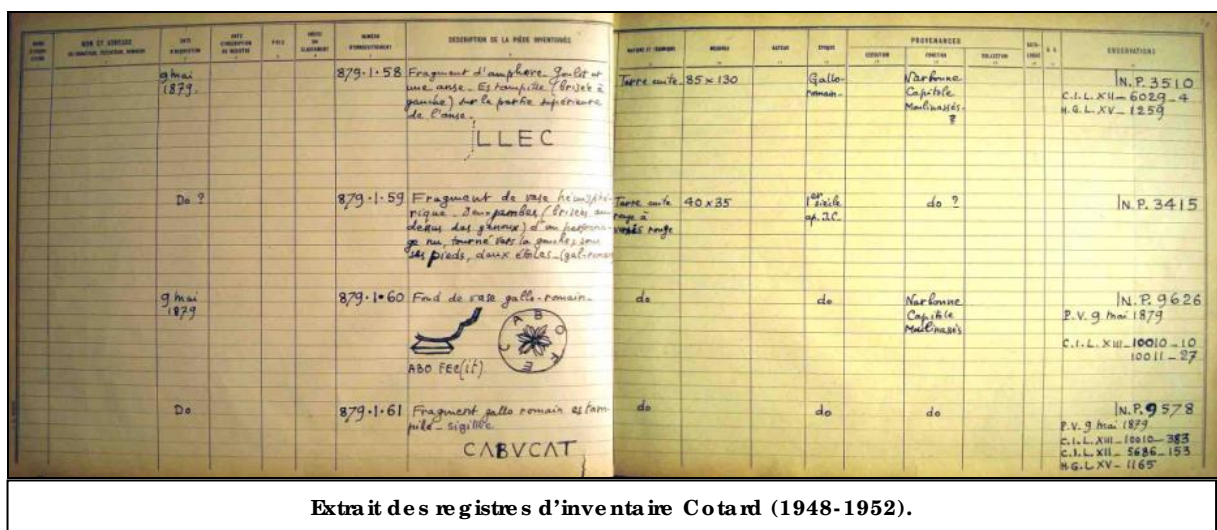 NOM ET ADRESSE
DATE D'ACQUISITION
DATE D'INSCRIPTION AU REGISTRE
PRIX
DESCRIPTION DE LA PIÈCE INVENTORIÉE
NATURE ET TECHNIQUE
MESURES
AUTEUR
ÉPOQUE
PROVENANCES
EXÉCUTION
FONCTION
COLLECTION
OBSERVATIONS
9 mai
1879.
879.1.58
Fragment d'amphore. Goulot et
une anse. Estampille (brisée à
gauche) sur la partie supérieure
de l'anse.
LLEC
Terre cuite.
85 x 130
Gallo-
romain.
Narbonne
Capitole
Moulinassés.
?
N.P. 3510
C.I.L. XII_ 6029_4
H.G.L. XV_ 1259
Do ?
879.1.59
Fragment de vase hémisphé-
rique. Deux jambes (brisées au
dessus des genoux) d'un personna-
ge nu, tourné vers la gauche; sous
ses pieds, deux étoiles_(gal-romain
Terre cuite
rouge à
vernis rouge
40 x 35
1er siècle
ap. J.C.
do ?
N.P. 3415
9 mai
1879
879.1.60
Fond de vase gallo-romain_
A B O F E C
ABO FEC(it)
do
do
Narbonne
Capitole
Moulinassés
N.P. 9626
P.V. 9 mai 1879
C.I.L. XIII_10010_10
10011_27
Do
879.1.61
Fragment gallo romain estam-
pillé_ sigillée
CABVCAT
do
do
do
N.P. 9578
P.V. 9 mai 1879
C.I.L. XIII_10010_383
C.I.L. XII_ 5686_153
H.G.L. XV_ 1165
Extrait des registres d'inventaire Cotard (1948-1952).